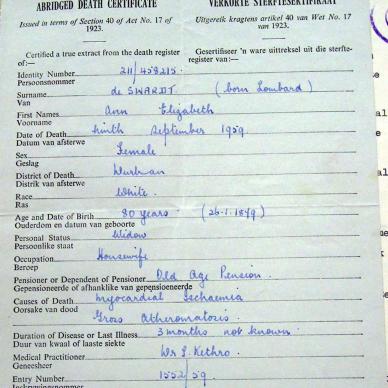 ABRIDGED DEATH CERTIFICATE
VERKORTE STERFTESERTIFIKAAT
Issued in terms of Section 40 of Act No. 17 of 1923.
Uitgereik kragtens artikel 40 van Wet No. 17 van 1923.
Certified a true extract from the death register of:—
Gesertifiseer 'n ware uittreksel uit die sterfte-register van:—
Identity Number 211/458215
Persoonsnommer
Surname de SWARDT (born Lombard)
Van
First Names Ann Elizabeth
Voorname
Date of Death Ninth September 1959
Datum van afsterwe
Sex Female
Geslag
District of Death Durban
Distrik van afsterwe
Race White.
Ras
Age and Date of Birth 80 years (26.1.1879)
Ouderdom en datum van geboorte
Personal Status Widow
Persoonlike staat
Occupation Housewife
Beroep
Pensioner or Dependent of Pensioner Old Age Pension.
Gepensioneerde of afhanklike van gepensioeneerde
Causes of Death Myocardial Ischaemia
Oorsake van dood Gross Atheromatosis.
Duration of Disease or Last Illness 3 months not known.
Duur van kwaal of laaste siekte
Medical Practitioner Kethro.
Geneesheer
Entry Number 1552/59
Inskrywingsnommer